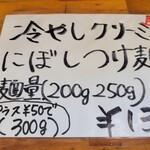 冷やしクリーミ
にぼしつけ麺
麺量(200g 250g)
プラス¥50で
(300g)
¥1